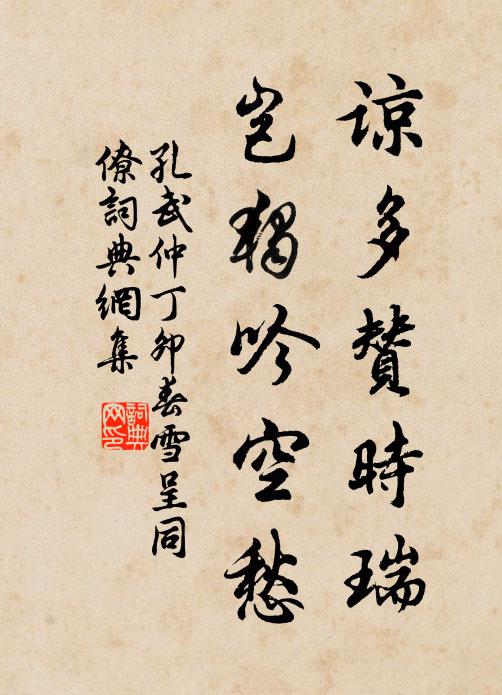 諒多贊時瑞
豈獨吟空愁
孔武仲丁卯春雪呈同
僚詞典網集
詞典网印